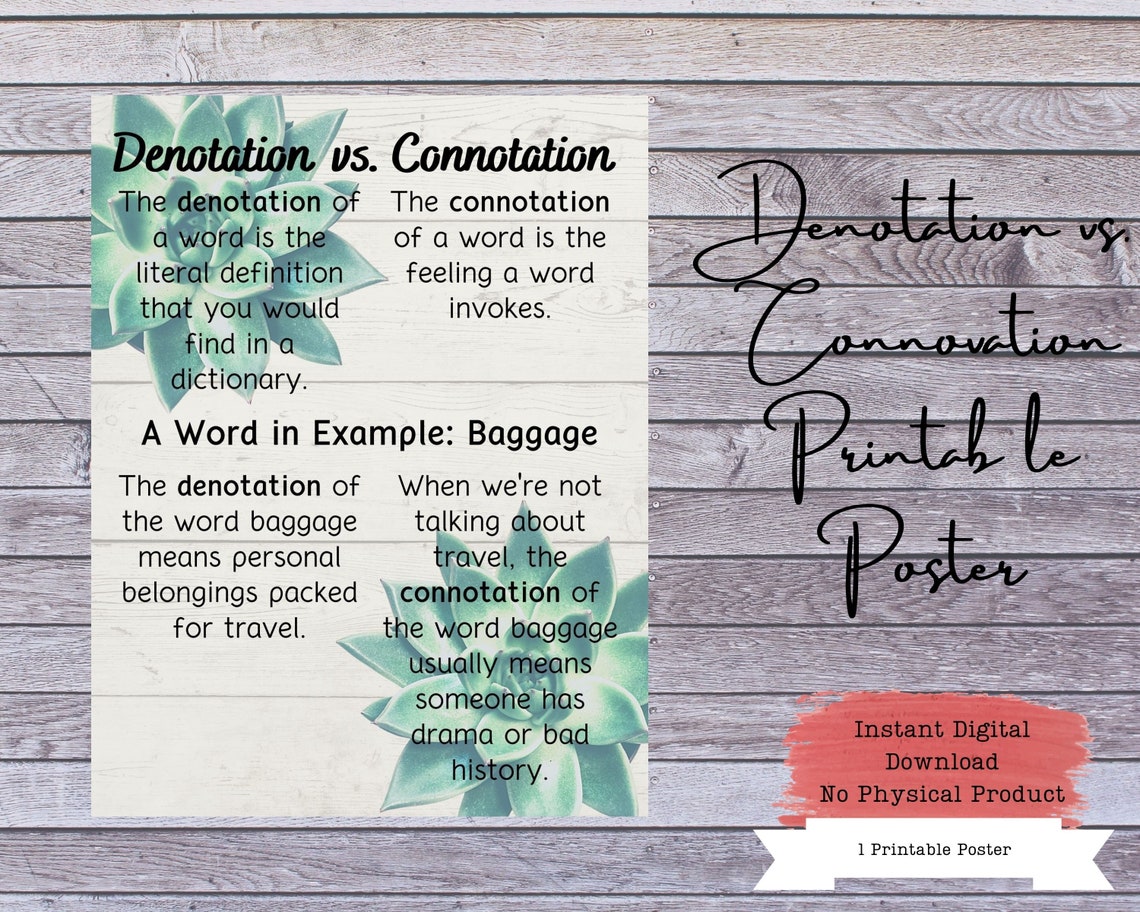 Denotation vs. Connotation
The denotation of
a word is the
literal definition
that you would
find in a
dictionary.
The connotation
of a word is the
feeling a word
invokes.
A Word in Example: Baggage
The denotation of
the word baggage
means personal
belongings packed
for travel.
When we're not
talking about
travel, the
connotation of
the word baggage
usually means
someone has
drama or bad
history.
Denotation vs.
Connovation
Printab le
Poster
Instant Digital
Download
No Physical Product
1 Printable Poster